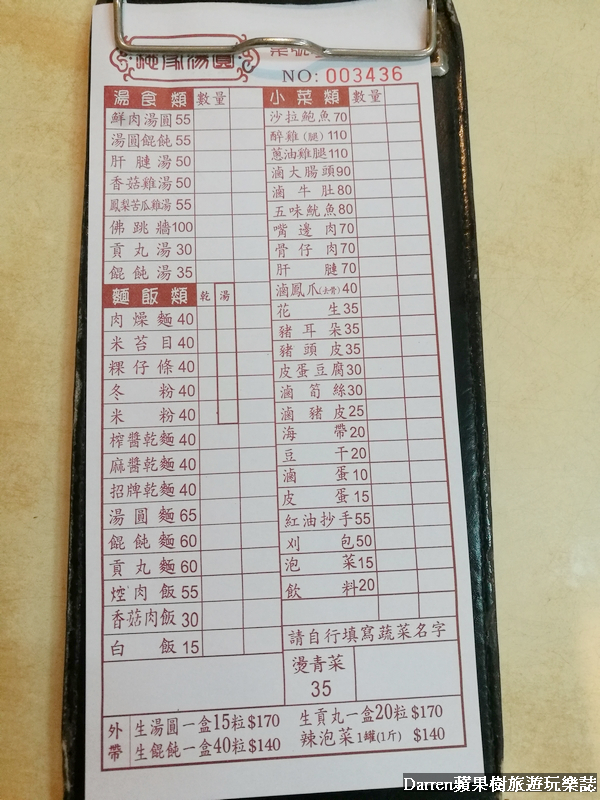 湯圓
NO: 003436
湯食類 數量
鮮肉湯圓 55
湯圓餛飩 55
肝腱湯 50
香菇雞湯 50
鳳梨苦瓜雞湯 55
佛跳牆 100
貢丸湯 30
餛飩湯 35
麵飯類 乾 湯
肉燥麵 40
米苔目 40
粿仔條 40
冬粉 40
米粉 40
榨醬乾麵 40
麻醬乾麵 40
招牌乾麵 40
湯圓麵 65
餛飩麵 60
貢丸麵 60
焢肉飯 55
香菇肉飯 30
白飯 15
小菜類 數量
沙拉鮑魚 70
醉雞(腿) 110
蔥油雞腿 110
滷大腸頭 90
滷牛肚 80
五味魷魚 80
嘴邊肉 70
骨仔肉 70
肝腱 70
滷鳳爪(去骨) 40
花生 35
豬耳朵 35
豬頭皮 35
皮蛋豆腐 30
滷筍絲 30
滷豬皮 25
海帶 20
豆干 20
滷蛋 10
皮蛋 15
紅油抄手 55
刈包 50
泡菜 15
飲料 20
請自行填寫蔬菜名字
燙青菜
35
外帶
生湯圓一盒15粒$170 生貢丸一盒20粒$170
生餛飩一盒40粒$140 辣泡菜1罐(1斤) $140
Darren蘋果樹旅遊玩樂誌